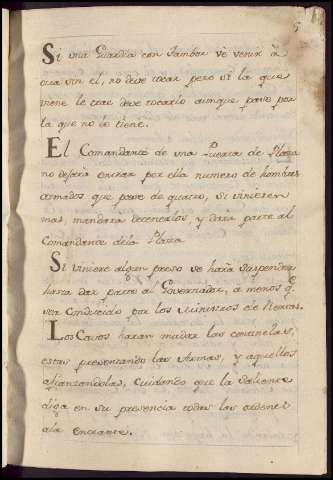 Si una Guardia con Tambor ve venir à
otra sin el, no deve tocar pero si la que
viene le trae deve tocarlo aunque pase por
la que no lo tiene.
El Comandante de una Puerta de Plaza
no dejará entrar por ella numero de hombres
armados que pase de quatro, si viniesen
mas, mandará detenerlos, y dará parte al
Comandante dela Plaza
Si viniere algun preso se hará suspender
hasta dar parte al Governador, a menos qe
sea conducido por los Ministros de
Los Cavos haran mudar las centinelas,
estas presentando las Armas, y aquellos
afianzandolas, cuidando que la Saliente
diga en su presencia todas las ordenes
ala Entrante.